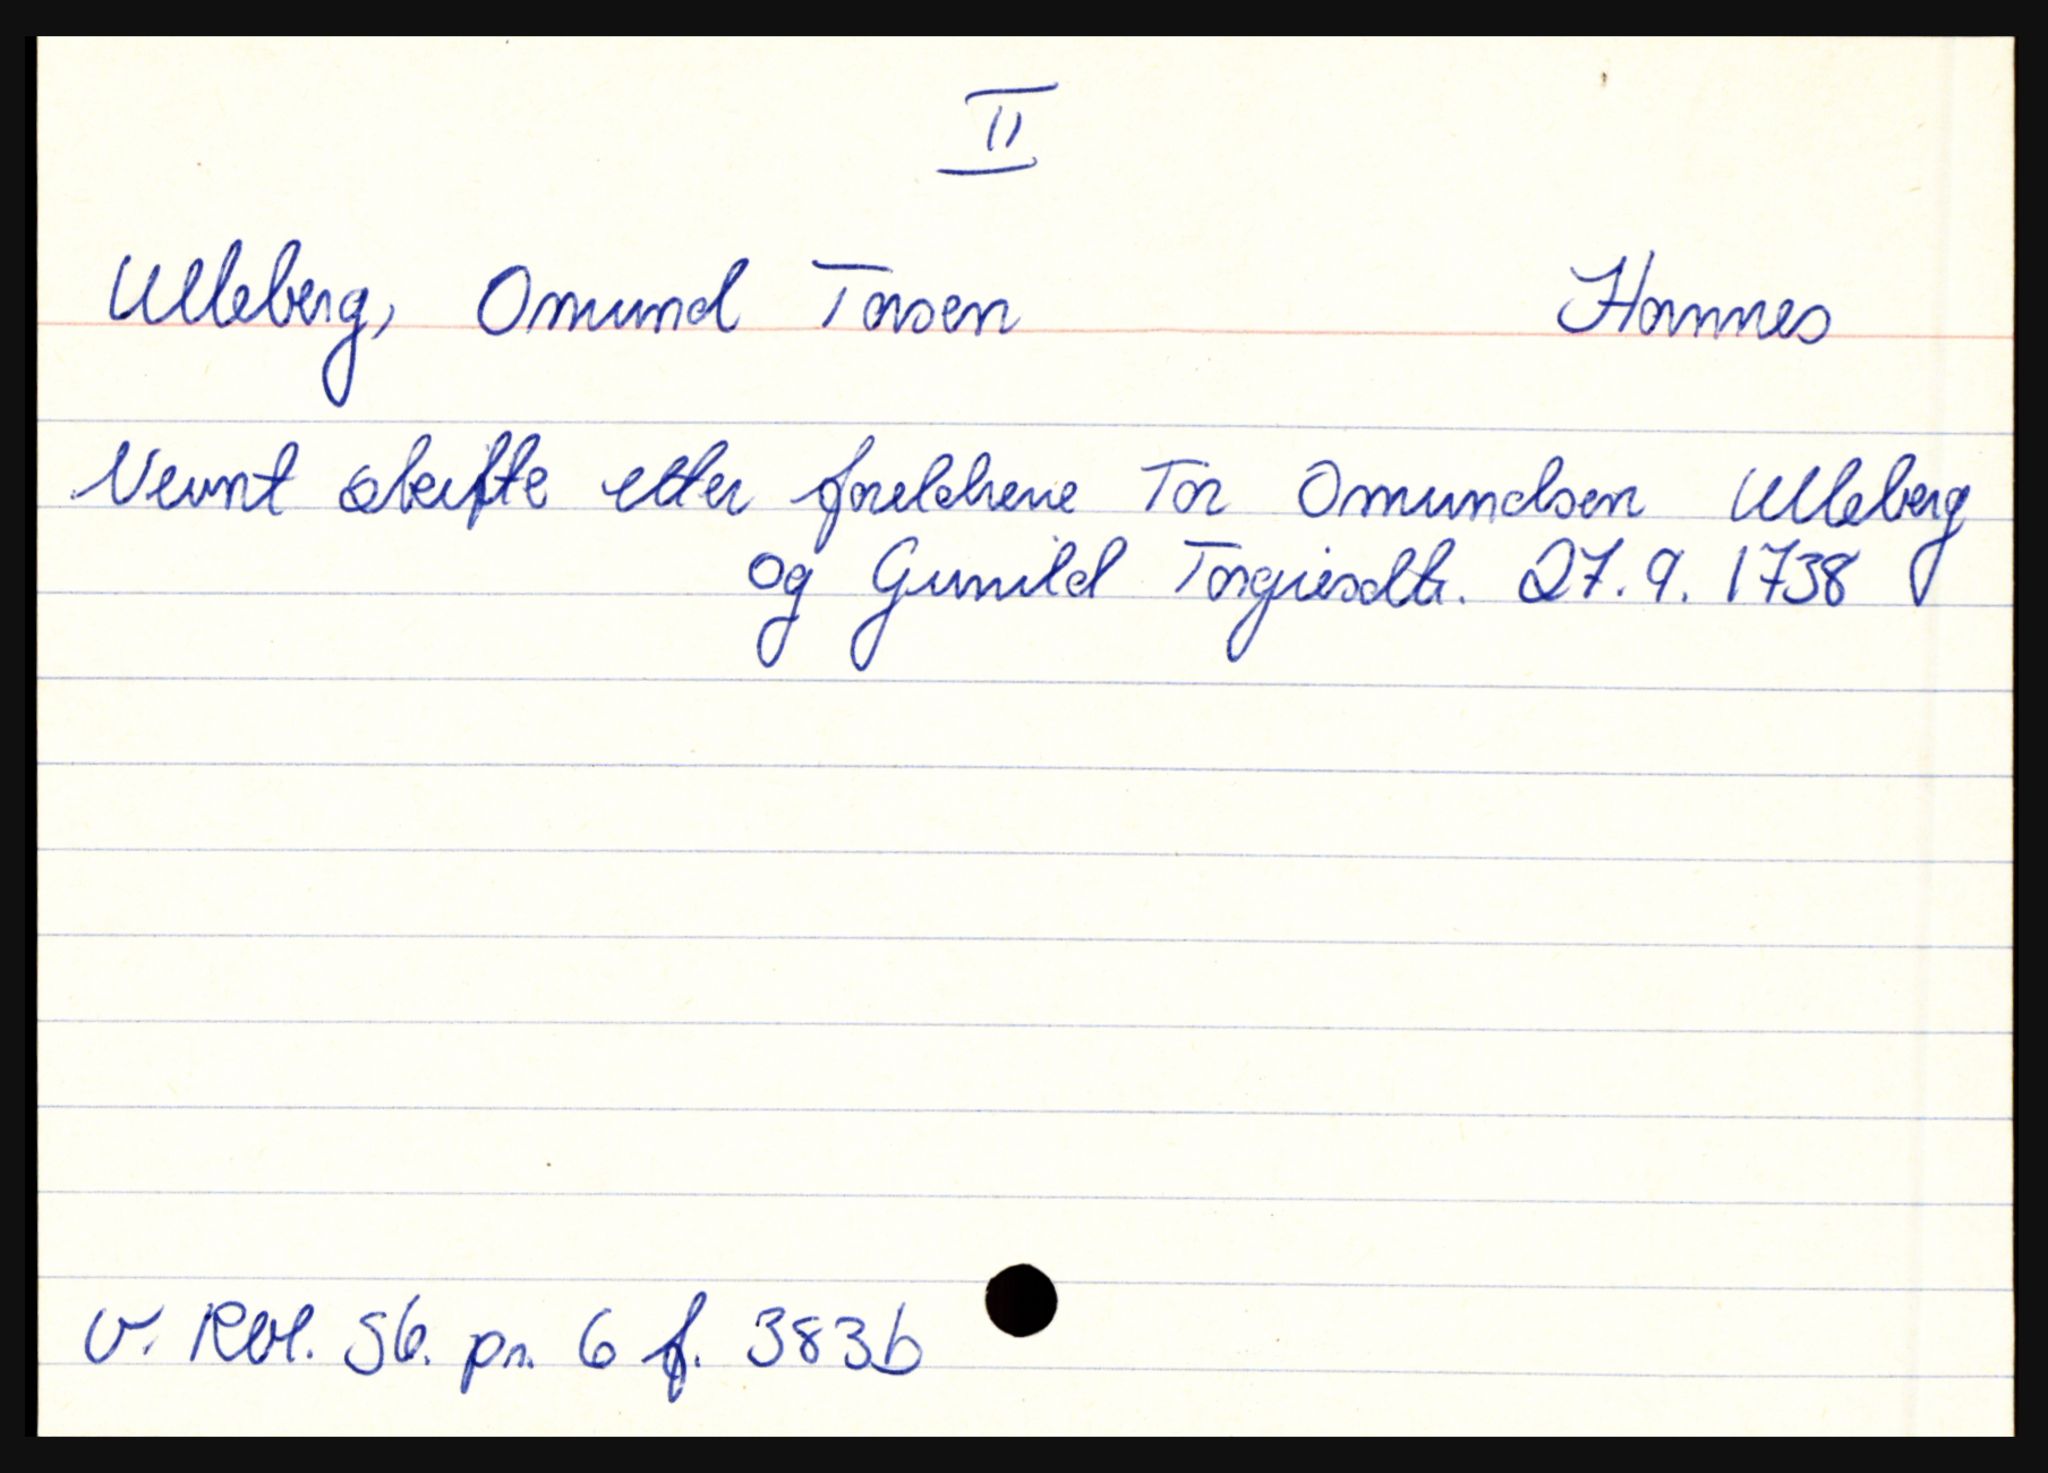 II
Ulleberg, Omund Torsen Homnes
Nevnt skifte etter foreldrene Tor Omundsen Ulleberg
og Gunild Torgiesdtr. 27.9.1738
V. Rbl. Sb. pr. 6 f. 383b